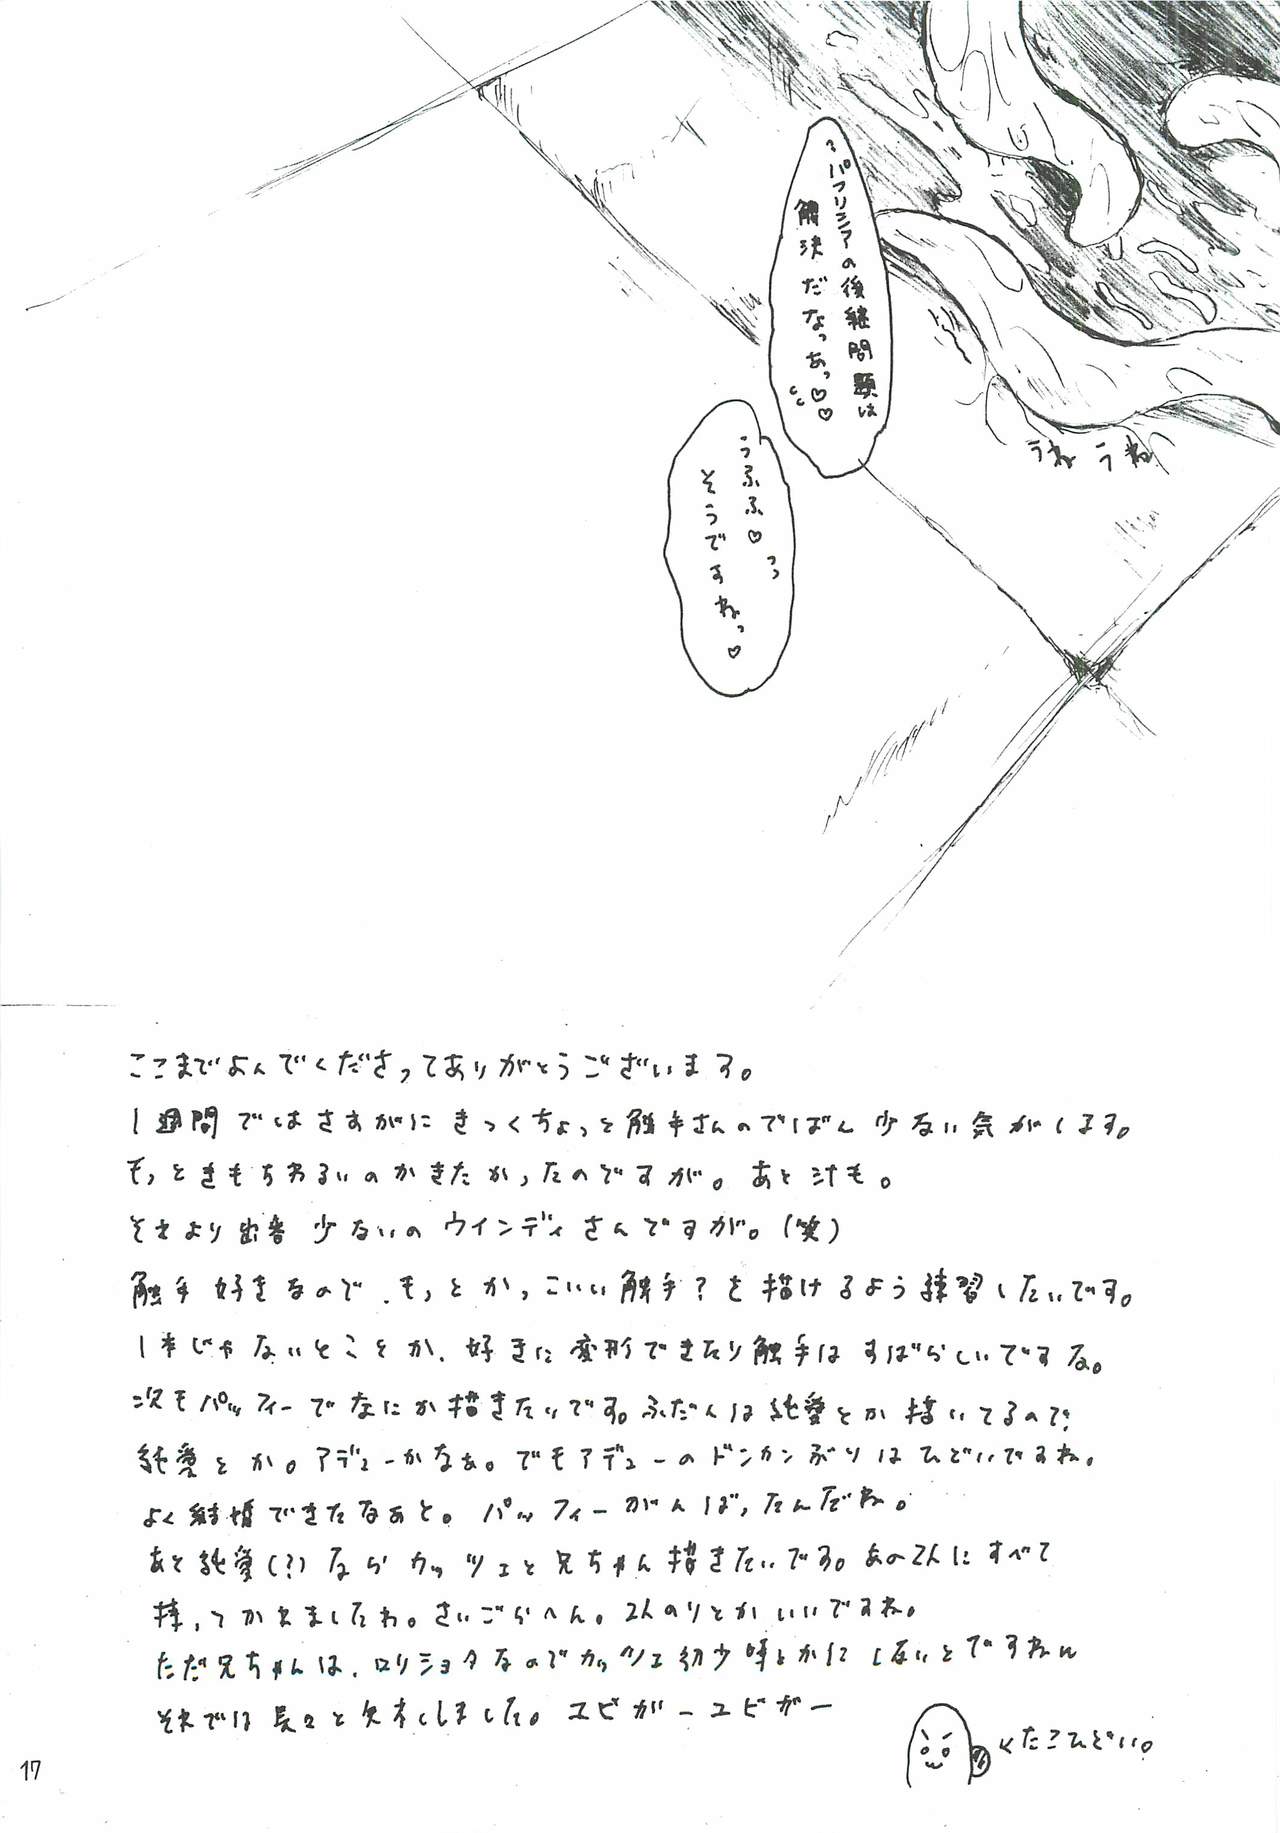 ?パフリシアの後継問題は
解決だなっあっ♡♡
うふふ♡っ
そうですねっ♡
うねうね
ここまでよんでくださってありがとうございます。
1週間ではさすがにきっくちょっと触手さんのでばん少ない気がします。
もっときもちわるいのかきたかったのですが。あと汁も。
それより出番少ないのウインディさんですが。(笑)
触手好きなので、もっとかっこいい触手?を描けるよう練習したいです。
1本じゃないとことか、好きに変形できたり触手はすばらしいですな。
次もパッフィーでなにか描きたいです。ふだんは純愛とか描いてるので
純愛とか。アデューかなぁ。でもアデューのドンカンぶりはひどいですね。
よく結婚できたなぁと。パッフィーがんばったんだね。
あと純愛(?)ならカッツェと兄ちゃん描きたいです。あの2人にすべて
持ってかれましたわ。さいごらへん。2人のりとかいいですね。
ただ兄ちゃんは、ロリショタなのでカッツェ幼少時とかにしないとですねw
それでは長々と失礼しました。ユビガーユビガー
<たこひどい。
17